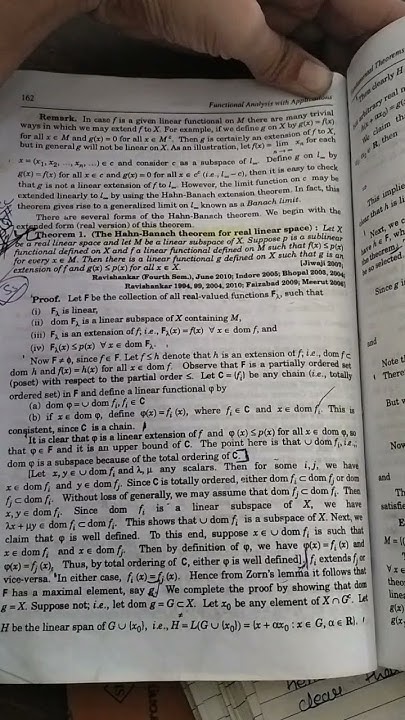 162
Functional Analysis with Applications
Remark. In case f is a given linear functional on M there are many trivial
ways in which we may extend f to X. For example, if we define g on X by g(x) = f(x)
for all x ∈ M and g(x) = 0 for all x ∈ Mᶜ. Then g is certainly an extension of f to X,
but in general g will not be linear on X. As an illustration, let f(x) = lim xₙ for each
n→∞
x = (x₁, x₂, ..., xₙ, ...) ∈ c and consider c as a subspace of l∞. Define g on l∞ by
g(x) = f(x) for all x ∈ c and g(x) = 0 for all x ∈ cᶜ (i.e., l∞ – c), then it is easy to check
that g is not a linear extension of f to l∞. However, the limit function on c may be
extended linearly to l∞ by using the Hahn-Banach extension theorem. In fact, this
theorem gives rise to a generalized limit on l∞ known as a Banach limit.
There are several forms of the Hahn-Banach theorem. We begin with the
extended form (real version) of this theorem.
Theorem 1. (The Hahn-Banach theorem for real linear space) : Let X
be a real linear space and let M be a linear subspace of X. Suppose p is a sublinear
functional defined on X and f a linear functional defined on M such that f(x) ≤ p(x)
for every x ∈ M. Then there is a linear functional g defined on X such that g is an
extension of f and g(x) ≤ p(x) for all x ∈ X.
[Jiwaji 2007;
Ravishankar (Fourth Sem.), June 2010; Indore 2005; Bhopal 2003, 2004;
Ravishankar 1994, 99, 2004, 2010; Faizabad 2009; Meerut 2006]
Proof. Let F be the collection of all real-valued functions Fλ, such that
(i) Fλ is linear,
(ii) dom Fλ is a linear subspace of X containing M,
(iii) Fλ is an extension of f; i.e., Fλ(x) = f(x) ∀ x ∈ dom f, and
(iv) Fλ(x) ≤ p(x) ∀ x ∈ dom Fλ.
Now F ≠ ϕ, since f ∈ F. Let f ≤ h denote that h is an extension of f; i.e., dom f ⊂
dom h and f(x) = h(x) for all x ∈ dom f. Observe that F is a partially ordered set
(poset) with respect to the partial order ≤. Let C = {fᵢ} be any chain (i.e., totally
ordered set) in F and define a linear functional φ by
(a) dom φ = ∪ dom fᵢ, fᵢ ∈ C
(b) if x ∈ dom φ, define φ(x) = fᵢ (x), where fᵢ ∈ C and x ∈ dom fᵢ. This is
consistent, since C is a chain.
It is clear that φ is a linear extension of f and φ(x) ≤ p(x) for all x ∈ dom φ, so
that φ ∈ F and it is an upper bound of C. The point here is that ∪ dom fᵢ, i.e.,
dom φ is a subspace because of the total ordering of C.
[Let x, y ∈ ∪ dom fᵢ and λ, μ any scalars. Then for some i, j, we have
x ∈ dom fᵢ and y ∈ dom fⱼ. Since C is totally ordered, either dom fᵢ ⊂ dom fⱼ or dom
fⱼ ⊂ dom fᵢ. Without loss of generally, we may assume that dom fⱼ ⊂ dom fᵢ. Then
x, y ∈ dom fᵢ. Since dom fᵢ is a linear subspace of X, we have
λx + μy ∈ dom fᵢ ⊂ dom fᵢ. This shows that ∪ dom fᵢ is a subspace of X. Next, we
claim that φ is well defined. To this end, suppose x ∈ ∪ dom fᵢ is such that
x ∈ dom fᵢ and x ∈ dom fⱼ. Then by definition of φ, we have φ(x) = fᵢ (x) and
φ(x) = fⱼ (x). Thus, by total ordering of C, either φ is well defined] fᵢ extends fⱼ or
vice-versa. In either case, fᵢ (x) = fⱼ (x). Hence from Zorn's lemma it follows that
F has a maximal element, say g. We complete the proof by showing that dom
g = X. Suppose not; i.e., let dom g = G ⊂ X. Let x₀ be any element of X ∩ Gᶜ. Let
H be the linear span of G ∪ {x₀}, i.e., H = L(G ∪ {x₀}) = {x + αx₀ : x ∈ G, α ∈ R}.